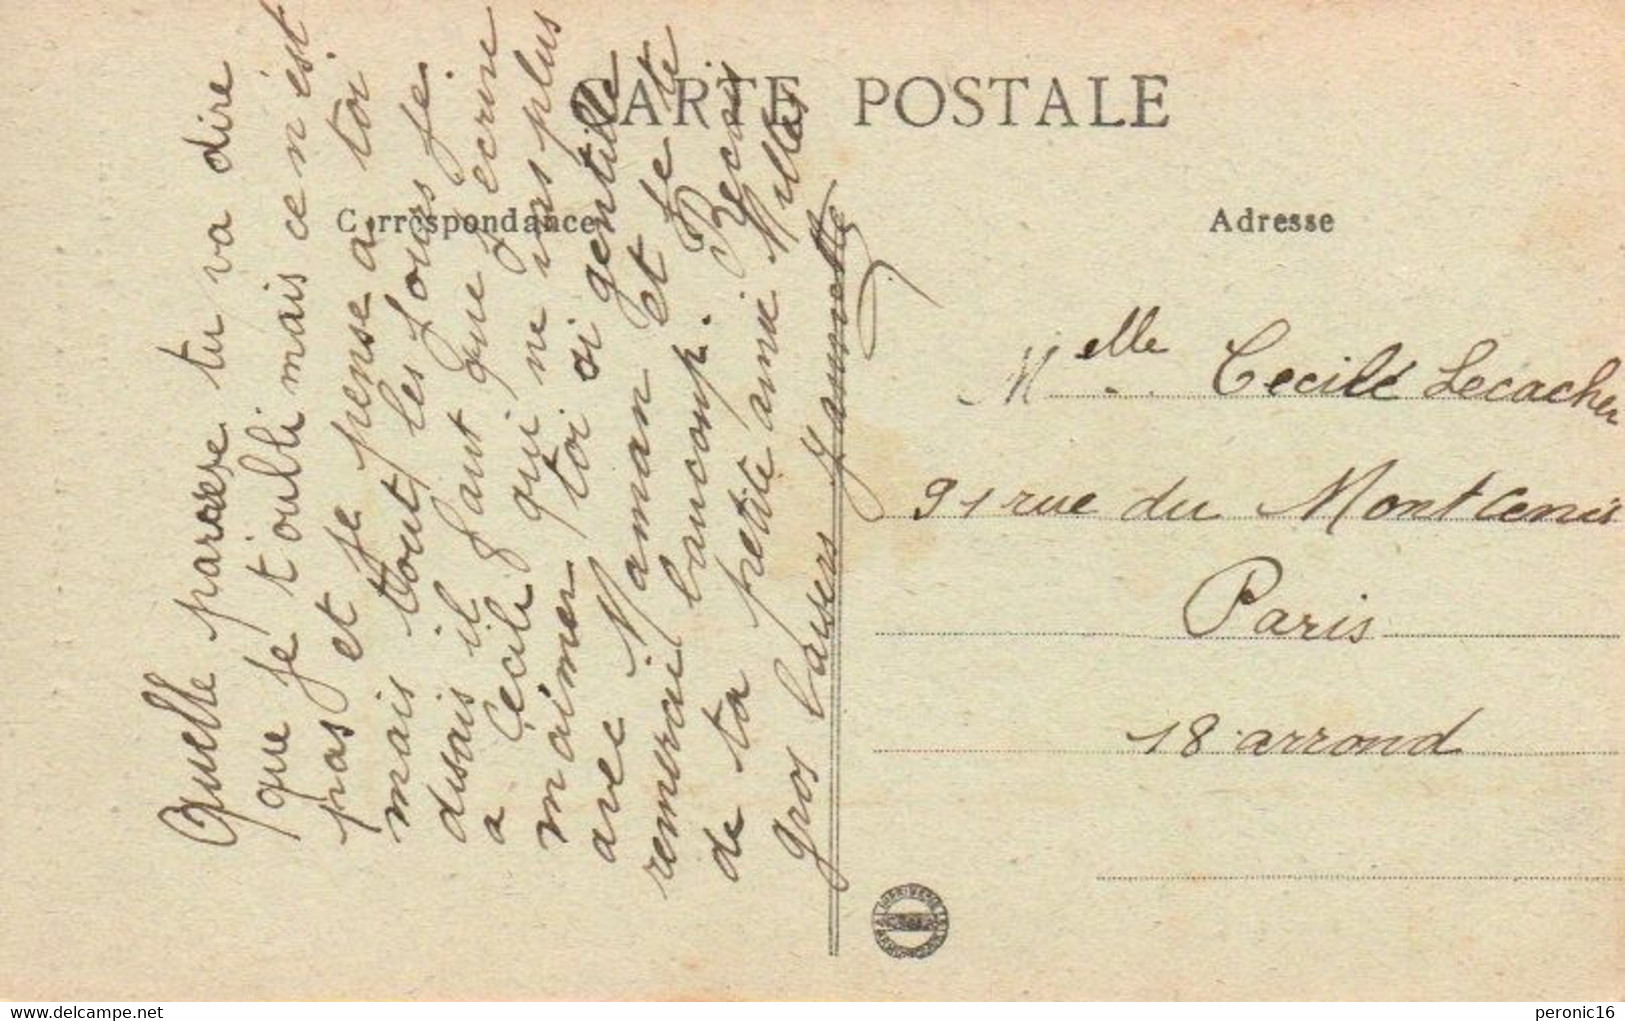 CARTE POSTALE
Correspondance
Adresse
Quelle paresse tu va dire
que je t'oubli mais ce n'est
pas et je pense a toi
mais tout les jours je
disais il faut que j'ecrive
a Cécile qui ne vas plus
m'aimer toi si gentille
avec Maman et je te
remerci baucoup. Recois
de ta petite amie Milles
gros baisers Jeannette
Melle Cecile Lecacher
91 rue du Mont Cenis
Paris
18 arrond
delcampe.net
peronic16